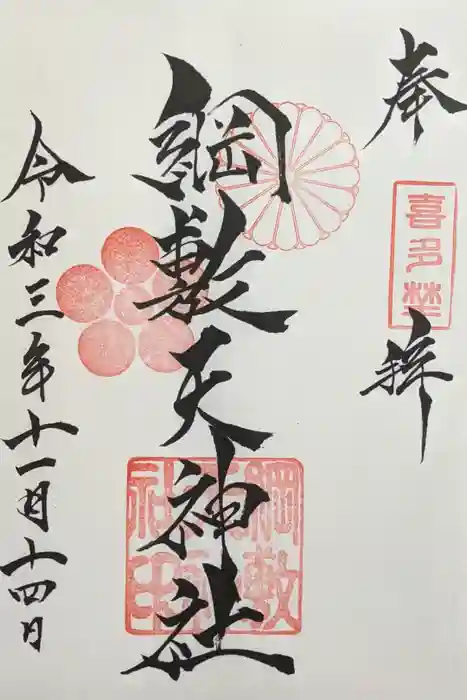 奉
喜多埜
拝
綱敷天神社
綱敷天神社印
令和三年十一月十四日